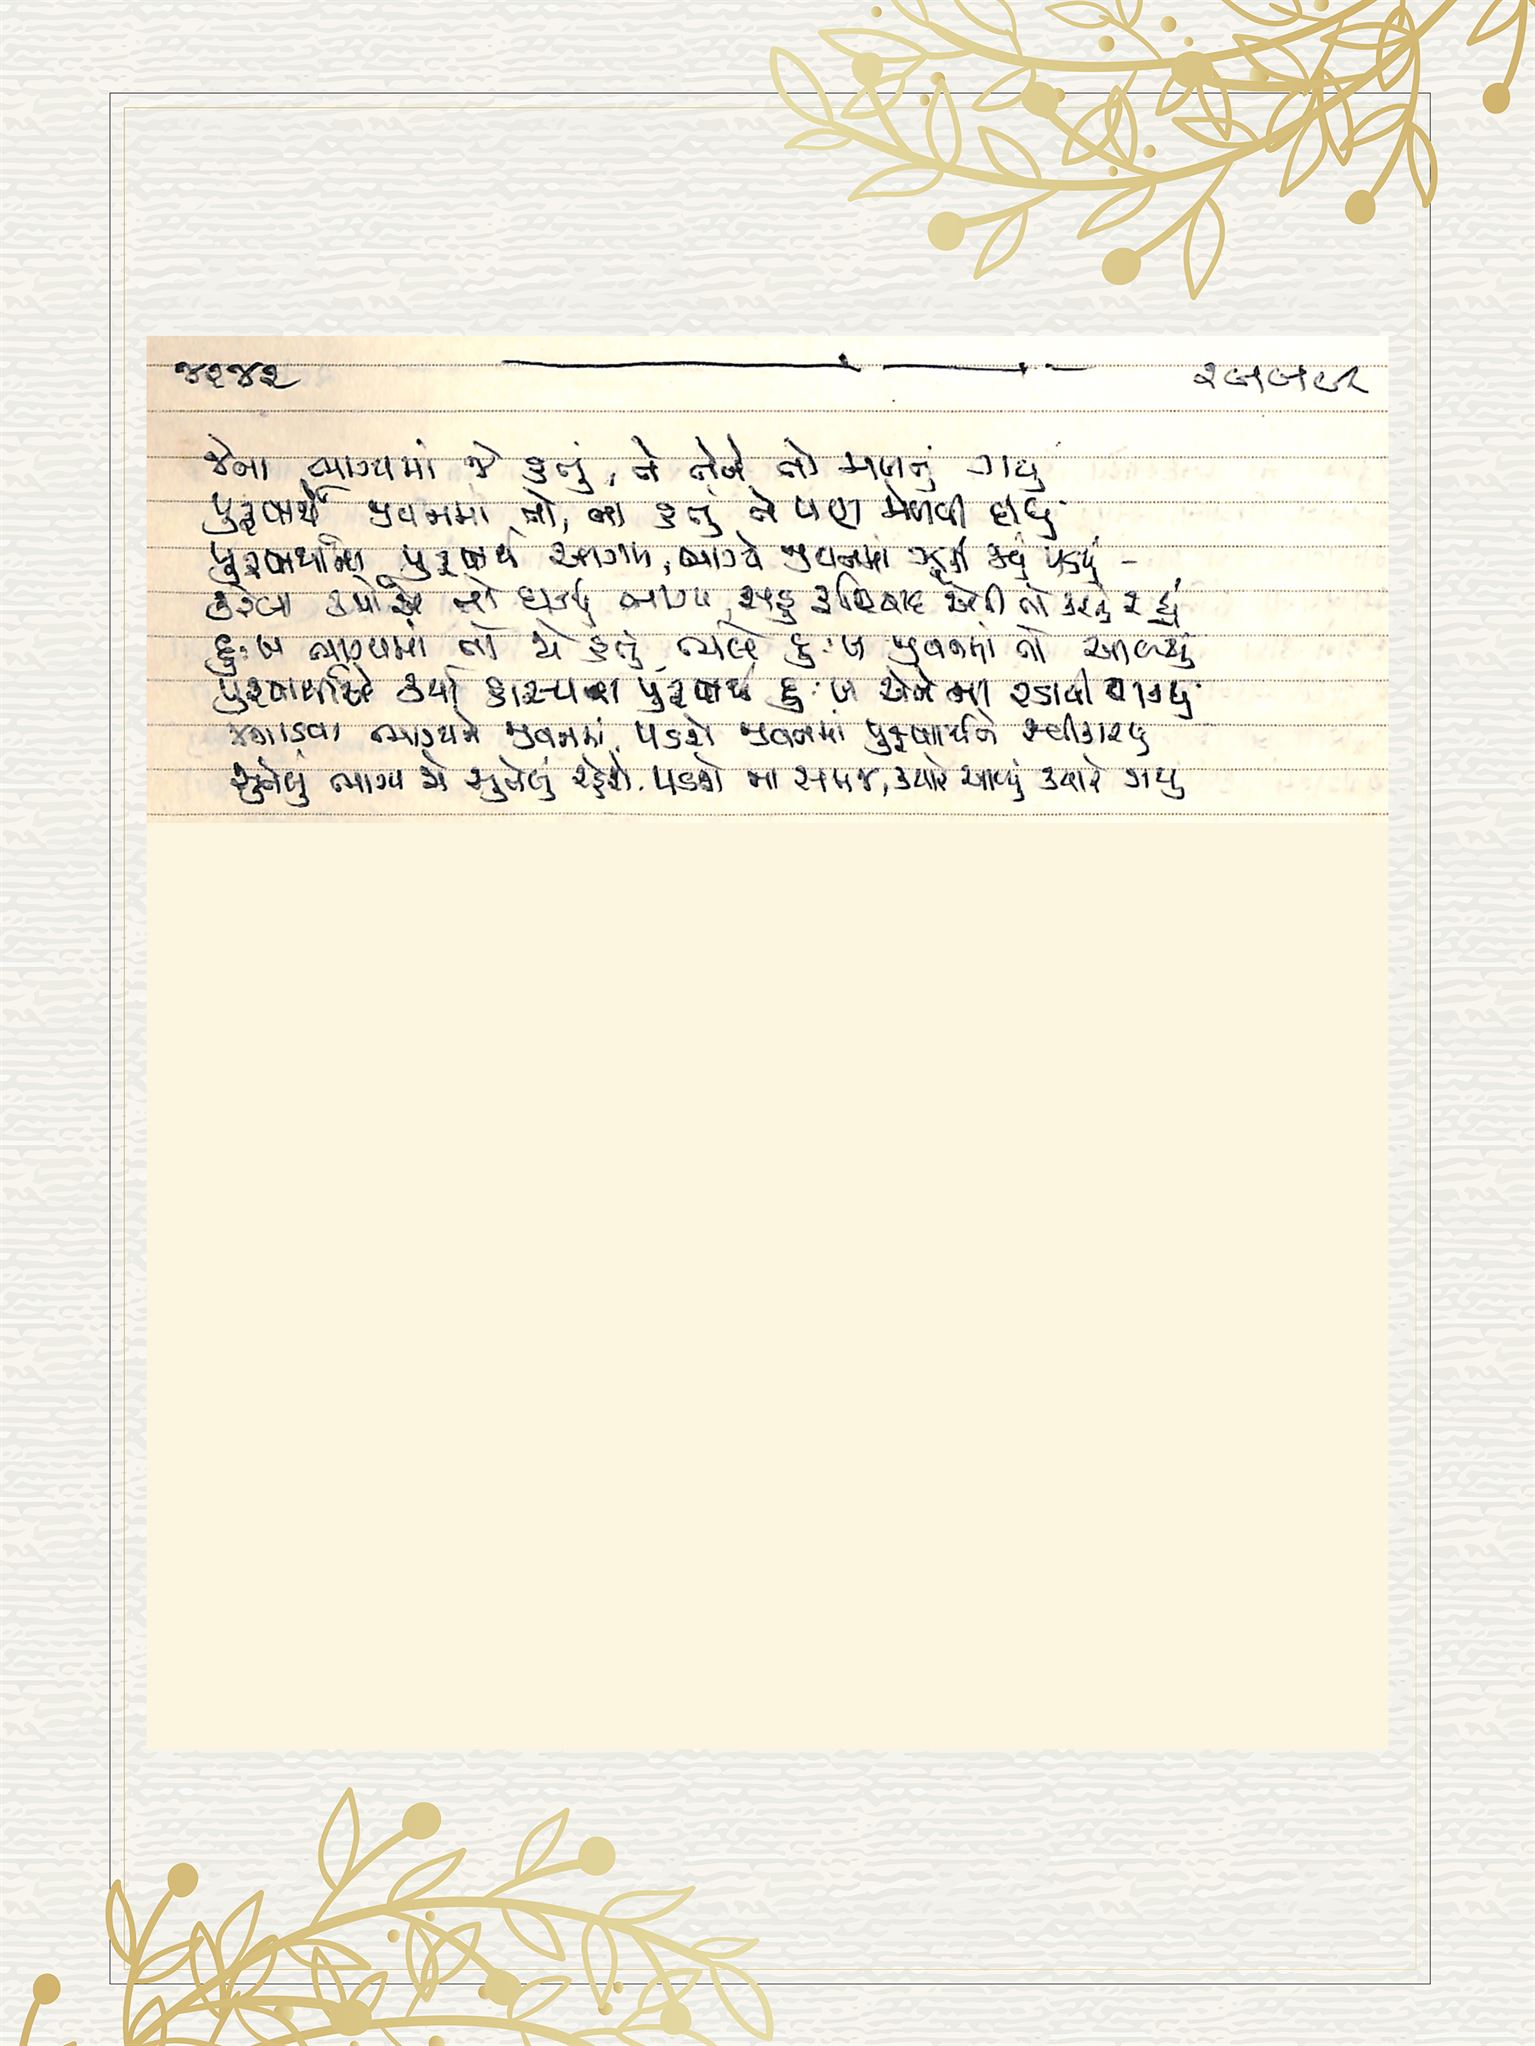 જેના ભાગ્યમાં જે હતું, તે તેને તો મળતું ગયું
પુરૂષાર્થે જીવનમાં તો, ના હતું તે પણ મેળવી દીધું
પુરૂષાર્થીના પુરૂષાર્થ આગળ, ભાગ્યે જીવનમાં ઝૂકી જવું પડયું -
કંઈકે તો ભાગ્ય, સહુ ફરિયાદ એની તો કરતું રહ્યું
દુઃખ ભાગ્યમાં તો જે હતું ભલે દુઃખ જીવનમાં તો આવ્યું
પુરૂષાર્થીએ કર્યો હાસ્યનો પુરૂષાર્થ દુઃખ એને ના રડાવી શક્યું
જગાડવા ભાગ્યને જીવનમાં, પડશે જીવનમાં પુરૂષાર્થને સ્વીકારવું
સુતેલું ભાગ્ય એ સુતેલું રહેશે. પડશે ના સમજ, ક્યારે આવ્યું ક્યારે ગયું